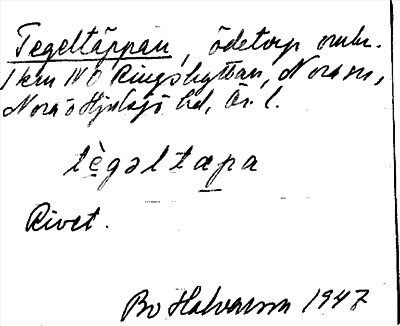 Tegeltäppan, ödetorp omkr.
1 km NO Ringshyttan, Nora sn,
Nora o Hjulsjö hd, Ör. l.
tègəltæpa
Rivet.
Bo Halvarsson 1947